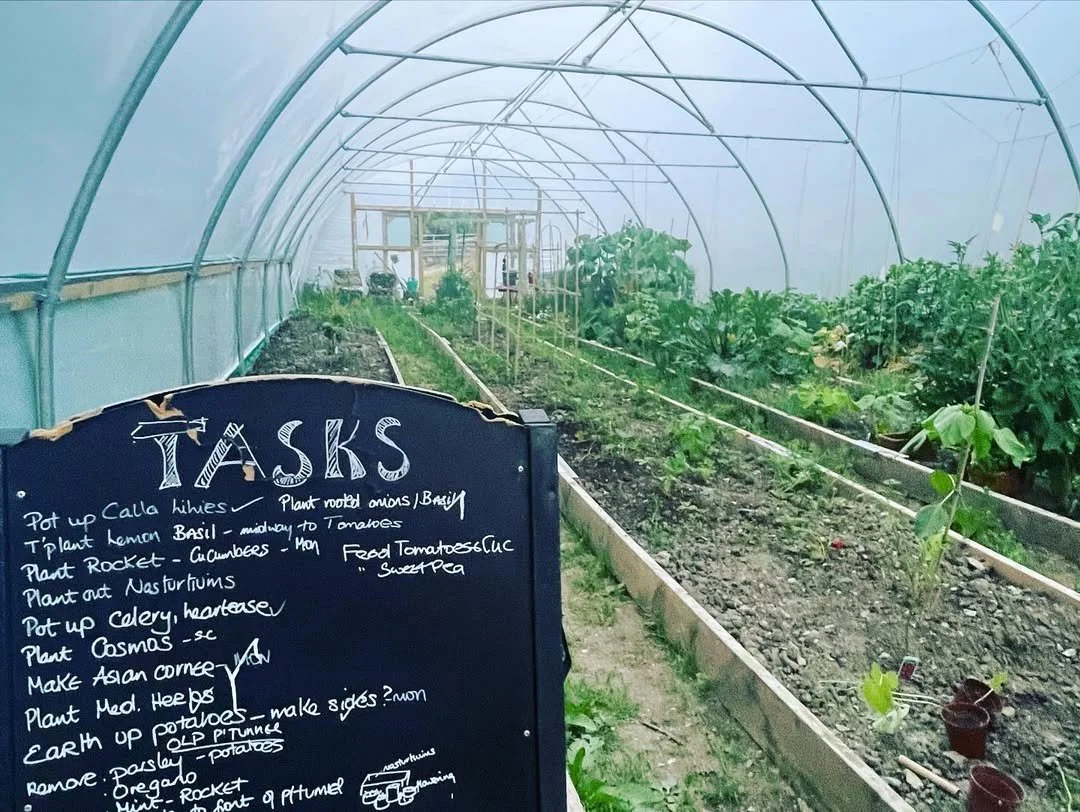 TASKS
Pot up Calla Lihies ✓
Plant rooted onions/Basil
T'plant Lemon BASIL - midway to Tomatoes
Plant Rocket - Cucumbers - Mon
Feed Tomatoes & Cuc
" Sweet Pea
Plant out Nasturtiums
Pot up Celery, heartease ✓
Plant Cosmos - sc
Make Asian corner - MON
Plant Med. Heebs
Earth up potatoes - make sides? mon
OLD P'TUNNEL
Remove: parsley - potatoes
Oregano
Mint - ROCKET
to front of P'tunnel
nasturtiums